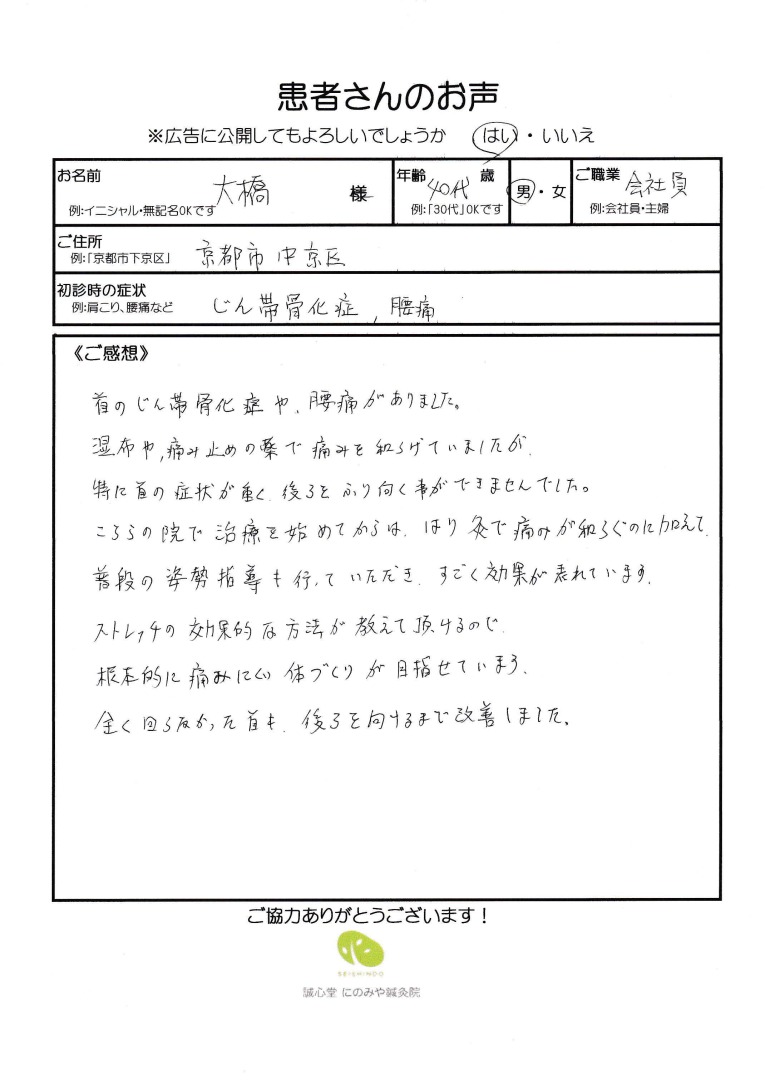 患者さんのお声
※広告に公開してもよろしいでしょうか はい・いいえ
お名前 大橋 様 年齢 40代 歳 男・女 ご職業 会社員
例:イニシャル・無記名OKです 例:「30代」OKです 例:会社員・主婦
ご住所
例:「京都市下京区」 京都市中京区
初診時の症状
例:肩こり、腰痛など じん帯骨化症、腰痛
《ご感想》
首のじん帯骨化症や、腰痛がありました。
湿布や、痛み止めの薬で痛みを和らげていましたが、
特に首の症状が重く、後ろをふり向く事ができませんでした。
こちらの院で治療を始めてからは、はり灸で痛みが和らぐのに加えて、
普段の姿勢指導も行っていただき、すごく効果が表れています。
ストレッチの効果的な方法が教えて頂けるので、
根本的に痛みにくい体づくりが目指せています。
全く回らなかった首も、後ろを向けるまで改善しました。
ご協力ありがとうございます!
SEISHINDO
誠心堂 にのみや鍼灸院